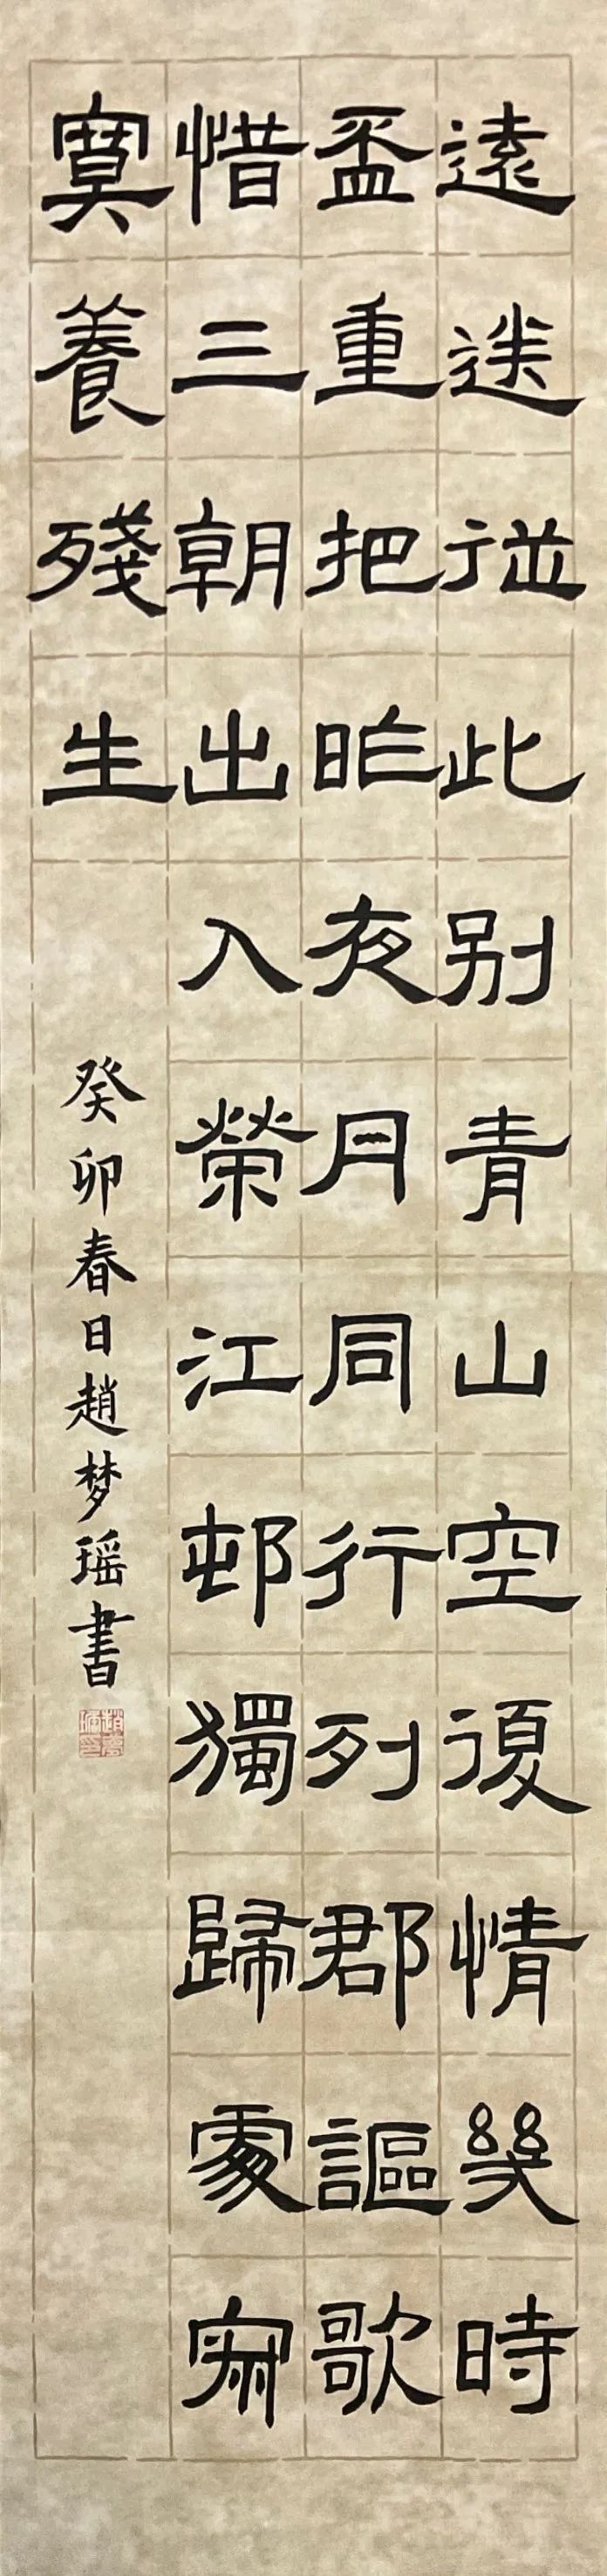 遠送從此别青山空復情幾時
盃重把昨夜月同行列郡謳歌
惜三朝出入榮江邨獨歸處寂
寞養殘生
癸卯春日趙梦瑶書